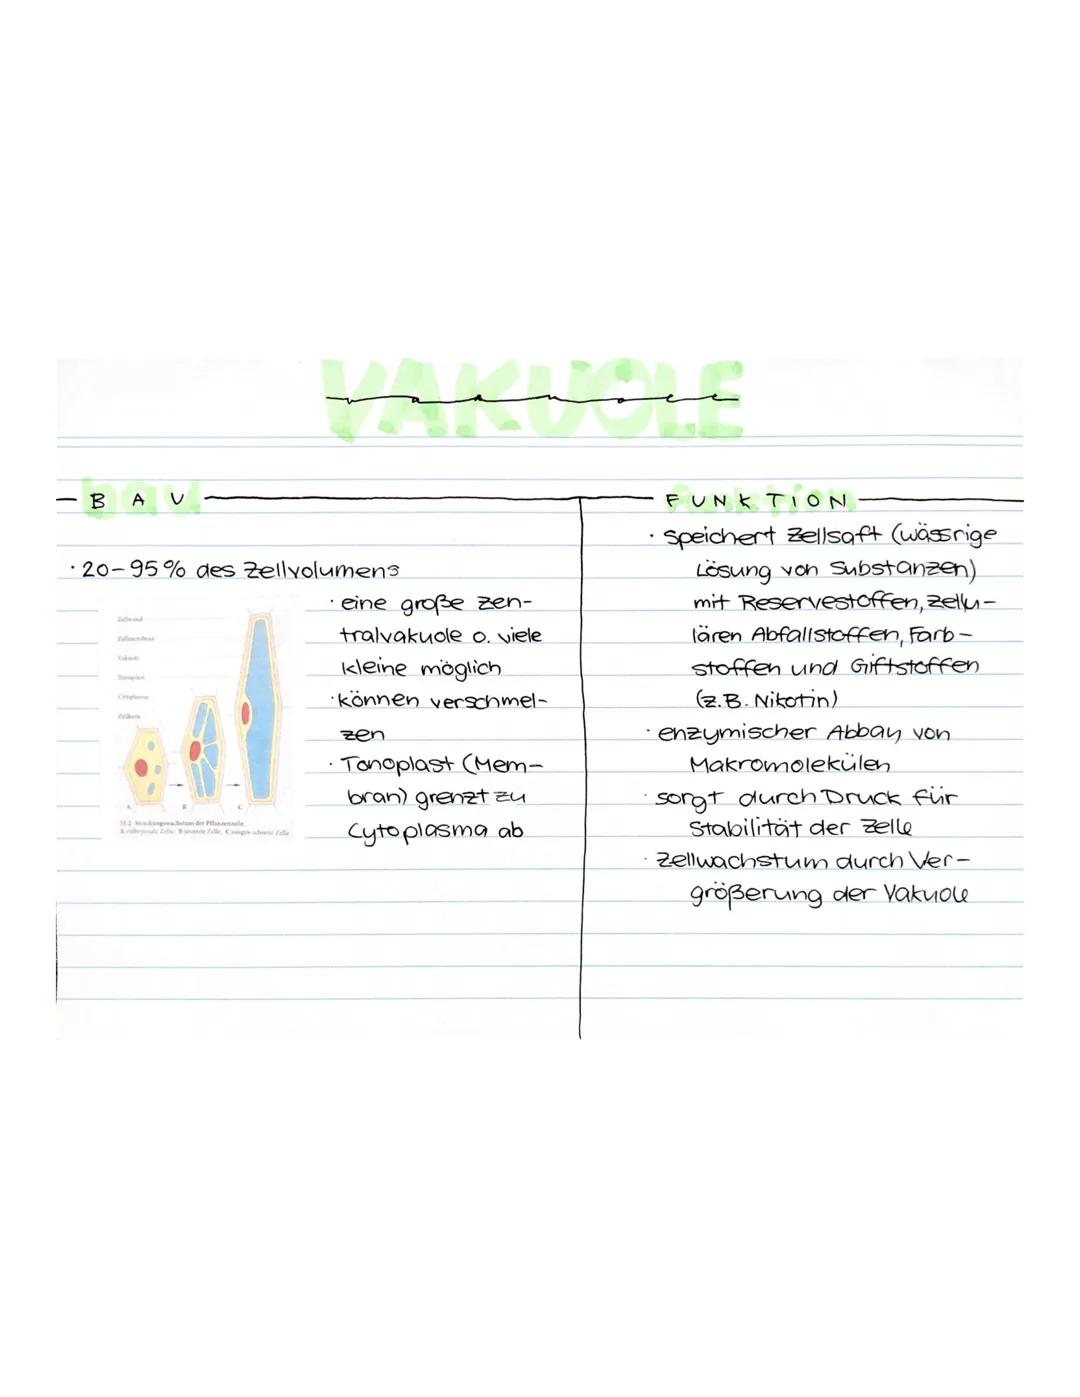 VAKUOLE
BAU
20-95% des Zellvolumens
Zellwand
Zellmembran
Vakuole
Tonoplast
Cytoplasma
Zellkern
A B C
31.2 Streckungswachstum der Pflanzenzelle.
A embryonale Zelle B Zelle, C Zelle
· eine große Zen-
tralvakuole o. viele
kleine möglich
· können verschmel-
zen
· Tonoplast (Mem-
bran) grenzt zu
Cytoplasma ab
FUNKTION
· speichert Zellsaft (wässrige
Lösung von Substanzen)
mit Reservestoffen, zellu-
lären Abfallstoffen, Farb-
stoffen und Giftstoffen
(z.B. Nikotin)
· enzymischer Abbau von
Makromolekülen
· sorgt durch Druck für
Stabilität der Zelle
· Zellwachstum durch Ver-
größerung der Vakuole